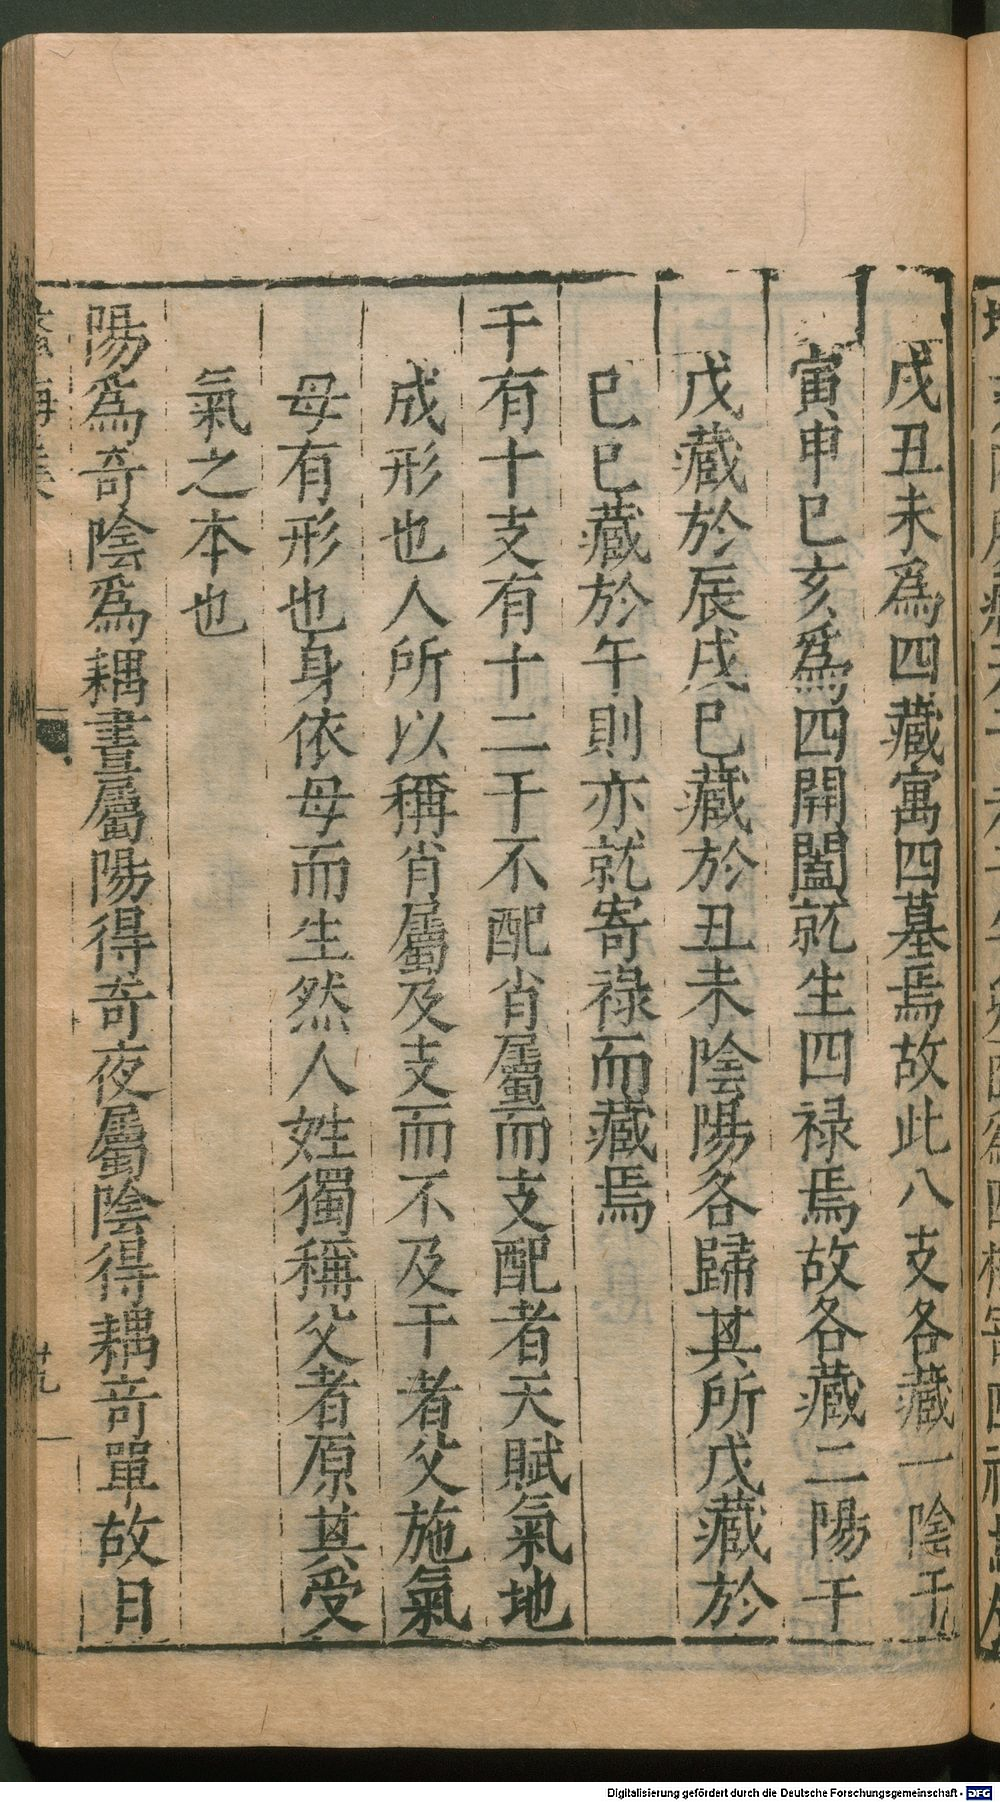 戌丑未爲四藏寓四墓焉故此八支各藏一陰干
寅申巳亥爲四開闔就生四祿焉故各藏二陽干
戊藏於辰戌巳藏於丑未陰陽各歸其所戊藏於
巳巳藏於午則亦就寄祿而藏焉
干有十支有十二干不配肖屬而支配者天賦氣地
成形也人所以稱肖屬及支而不及干者父施氣
母有形也身依母而生然人姓獨稱父者原其受
氣之本也
陽爲奇陰爲耦晝屬陽得奇夜屬陰得耦奇單故日
廿九
Digitalisierung gefördert durch die Deutsche Forschungsgemeinschaft - DFG